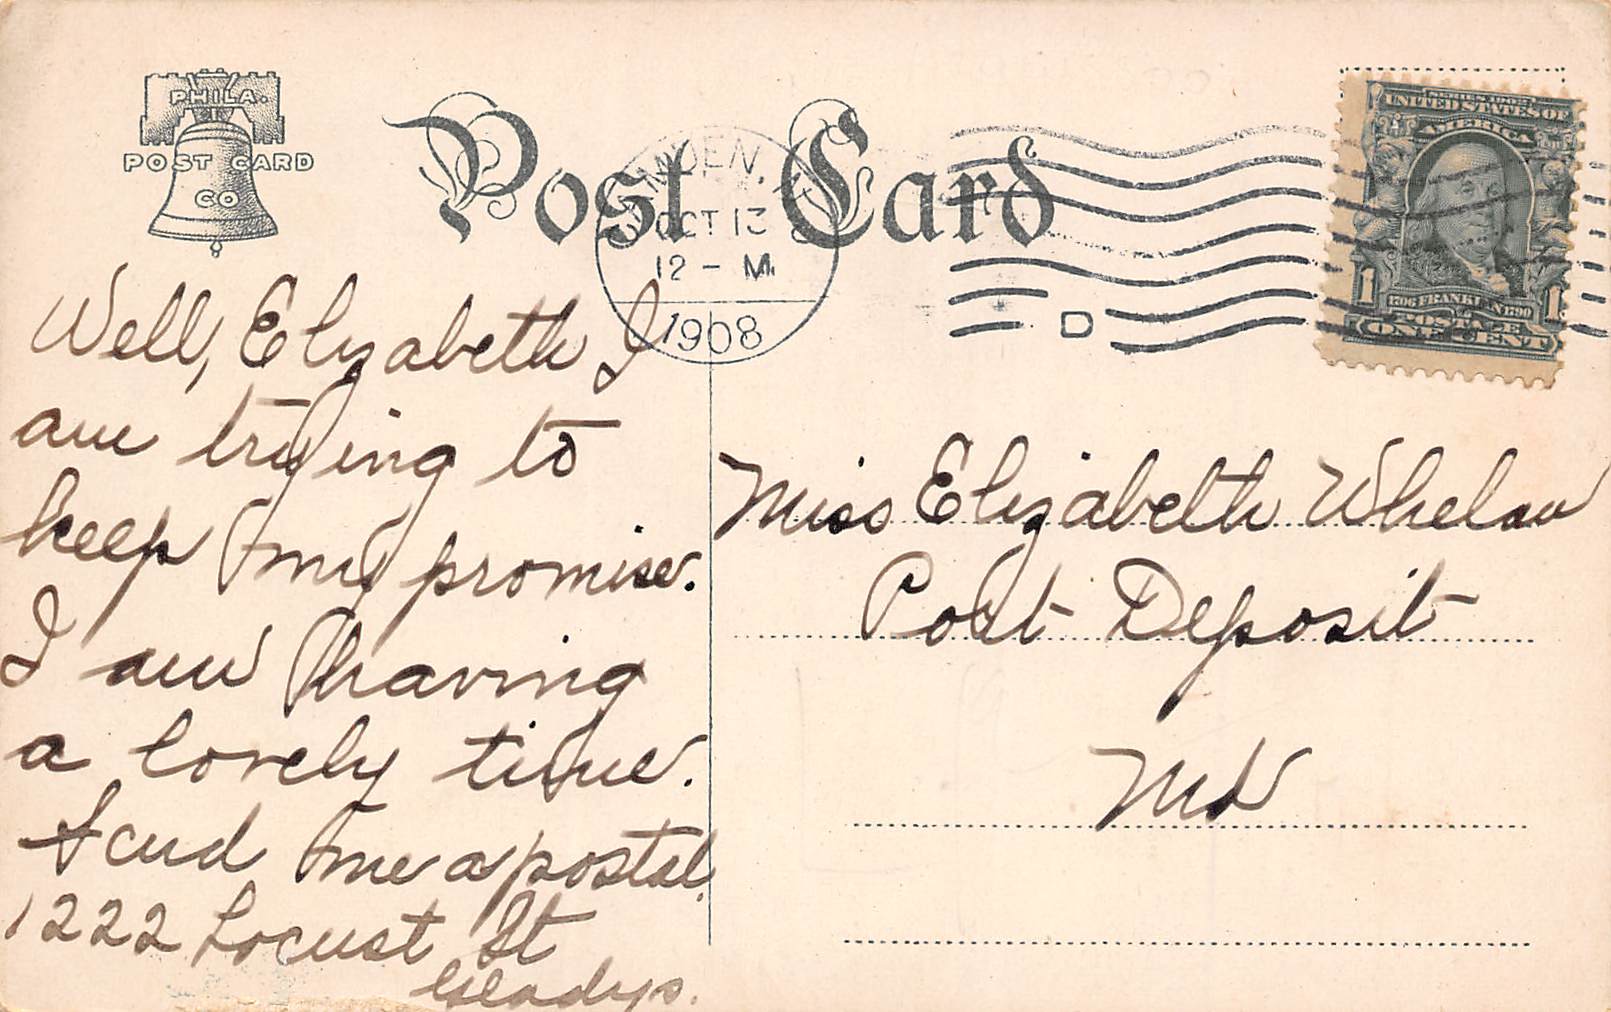 PHILA.
POST CARD
CO
Post Card
CAMDEN, N.J.
OCT 13
12 - M.
1908
D
SERIES 1902
UNITED STATES OF
AMERICA
1706 FRANKLIN 1790
1 1
POSTAGE
ONE CENT
Well, Elizabeth I
am trying to
keep my promise.
I am having
a lovely time.
Send me a postal.
1222 Locust St
Gladys.
Miss Elizabeth Whelan
Port Deposit
Md